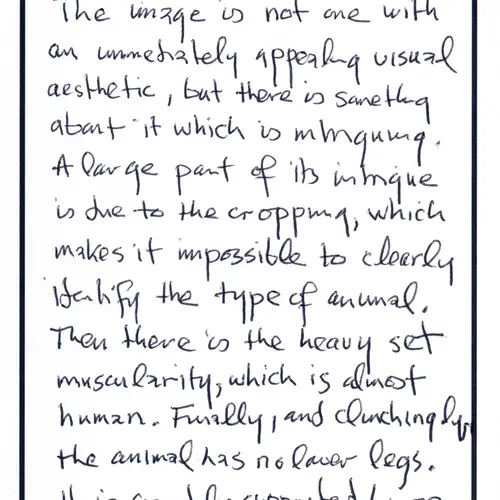 The image is not one with
an immediately appealing visual
aesthetic, but there is something
about it which is intriguing.
A large part of its intrigue
is due to the cropping, which
makes it impossible to clearly
identify the type of animal.
Then there is the heavy set
muscularity, which is almost
human. Finally, and clinchingly,
the animal has no lower legs.